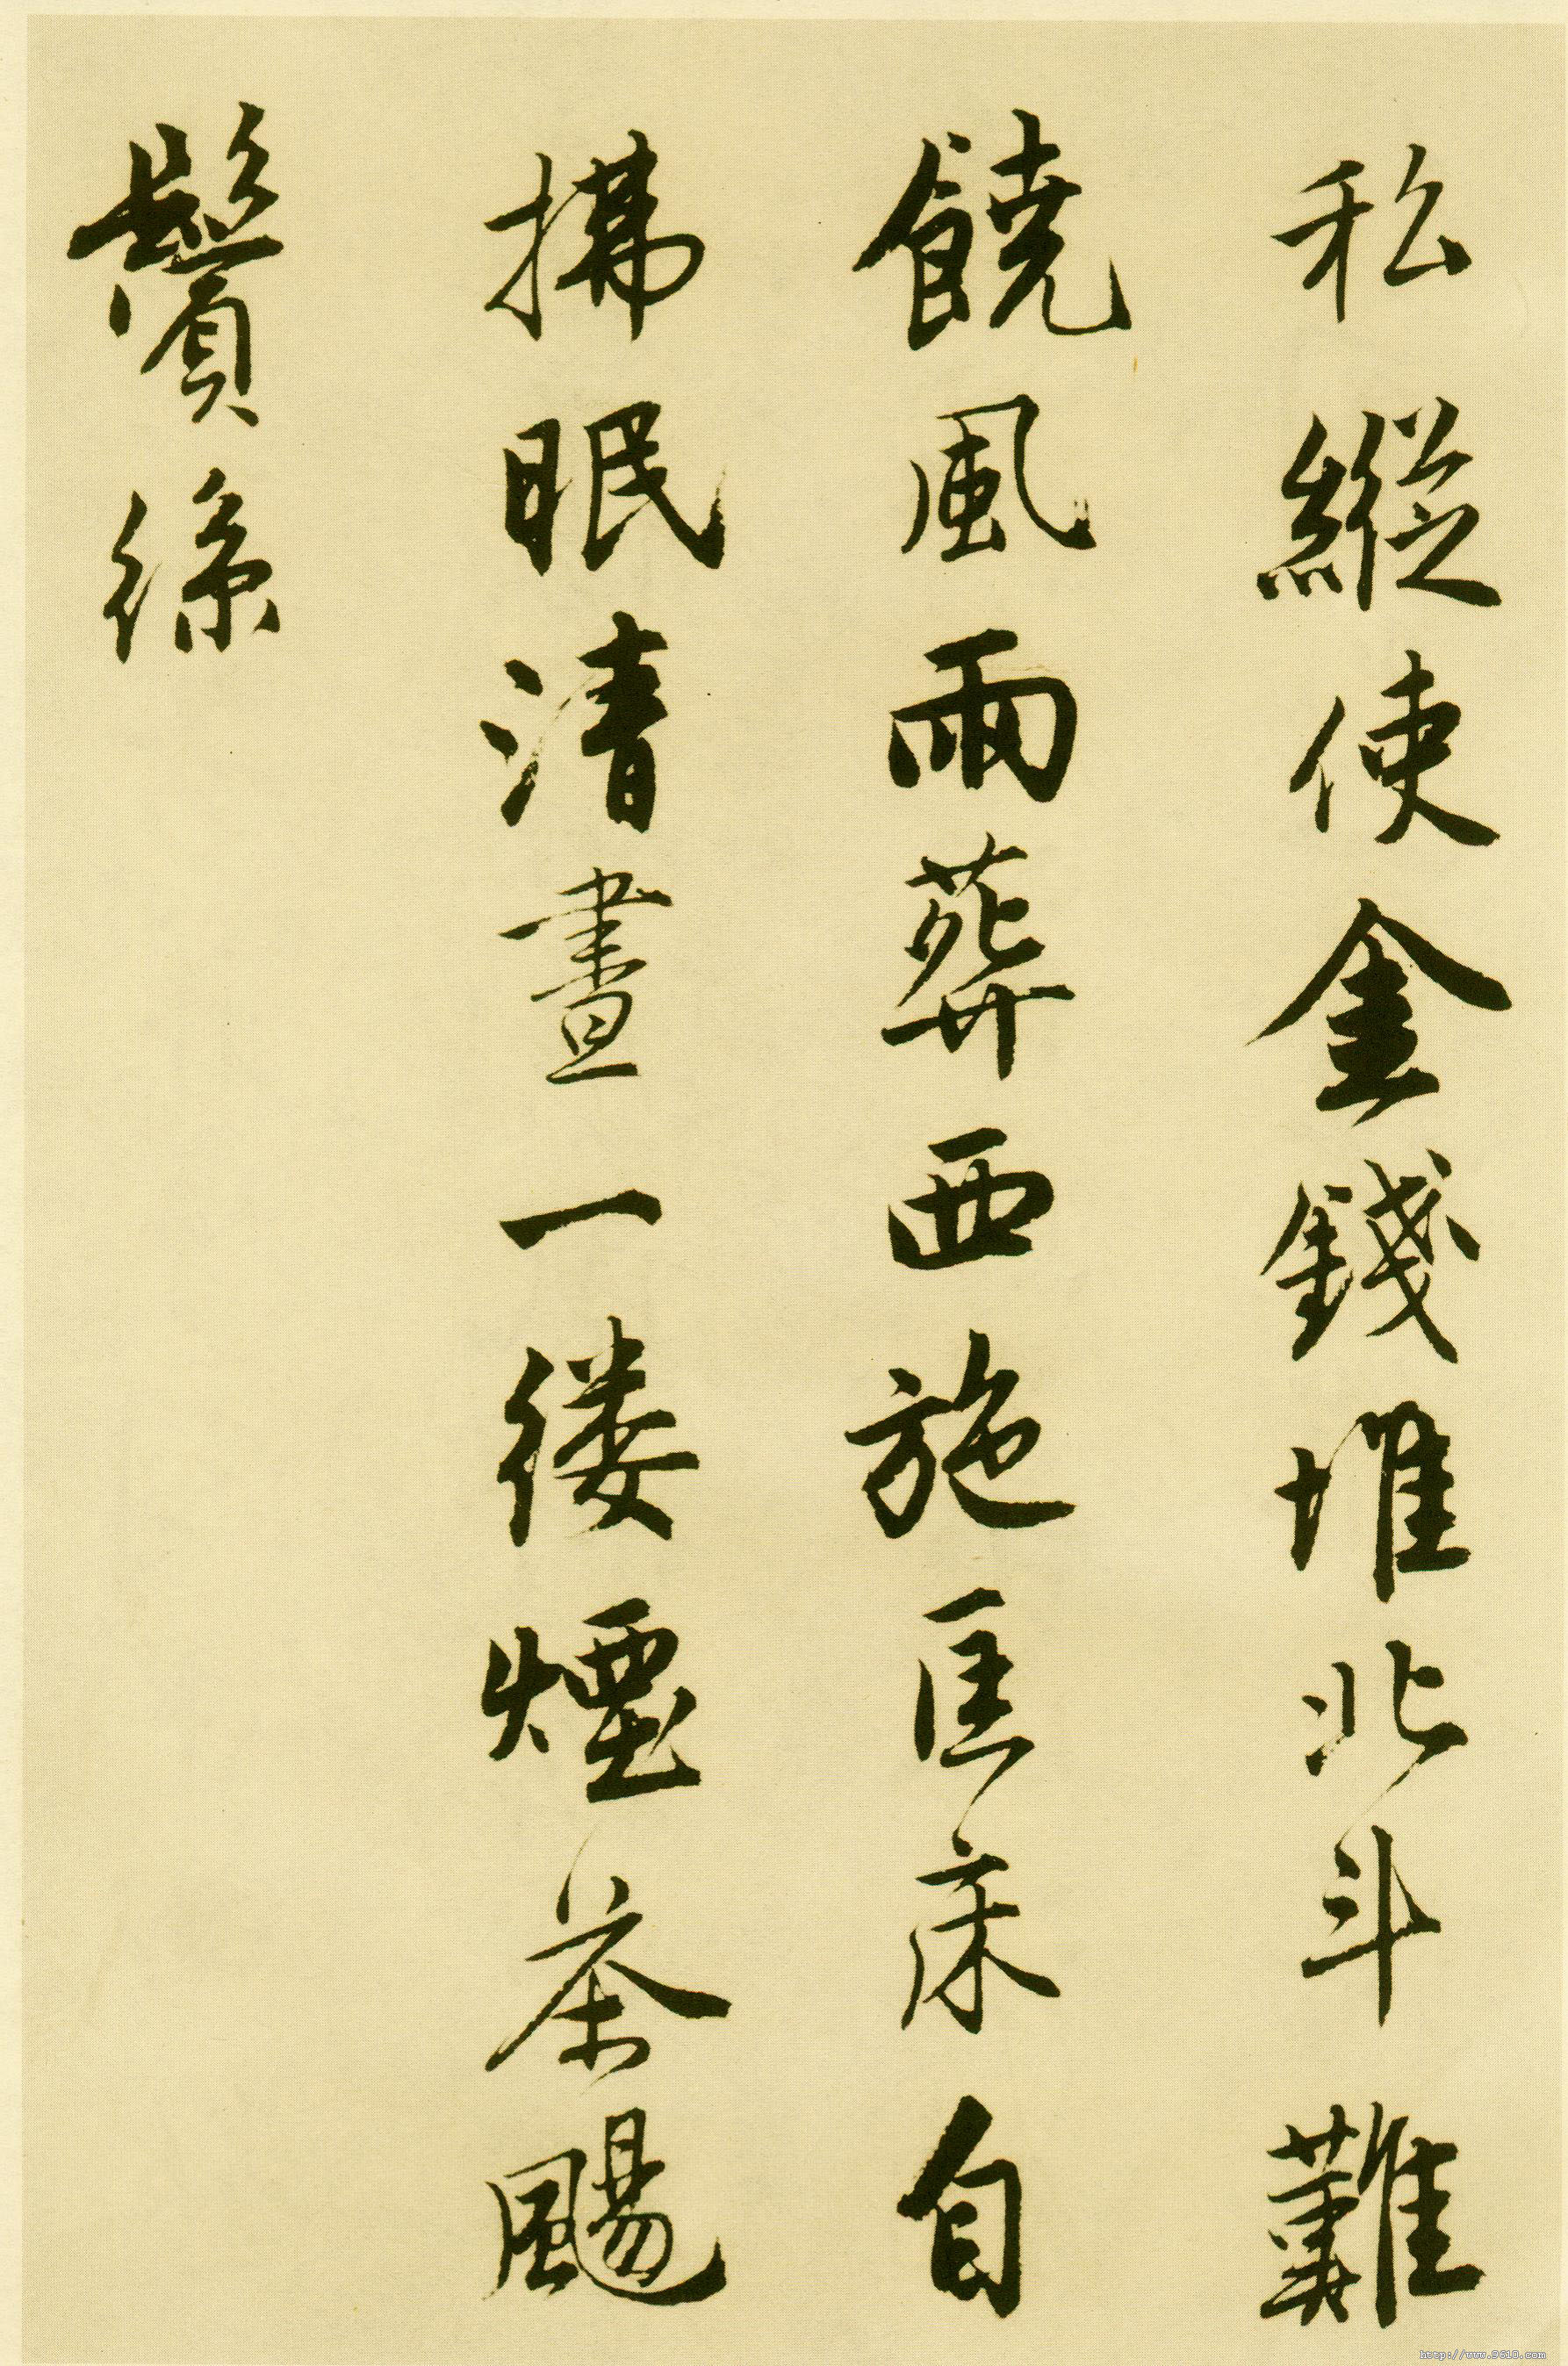 私縱使金錢堆北斗難
饒風雨葬西施匡床自
拂眠清晝一縷煙茶颺
鬢絲
http://www.9610.com